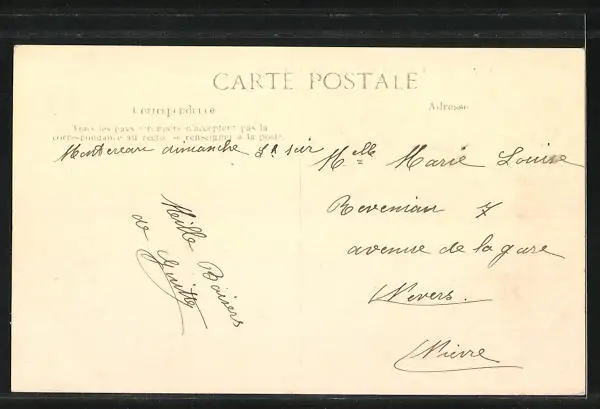 CARTE POSTALE
Correspondance
Adresse
Tous les pays étrangers n'acceptent pas la
correspondance au recto, se renseigner à la poste.
Montereau dimanche soir
Melle Marie Louise
7
avenue de la gare
Nevers.
Nièvre
Mille Baisers
de